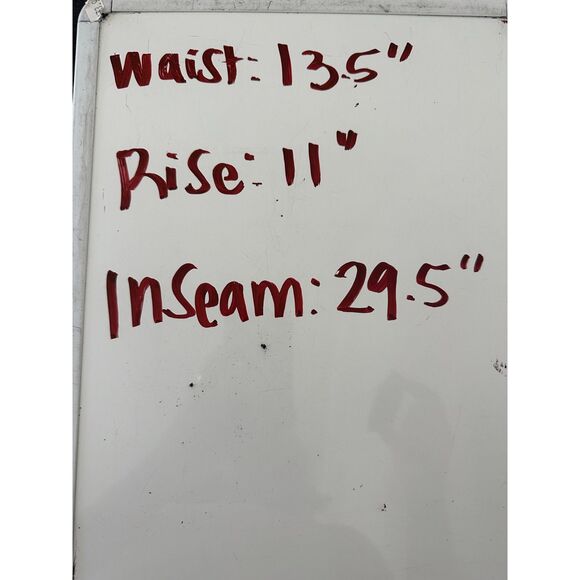 Waist: 13.5"
Rise: 11"
Inseam: 29.5"